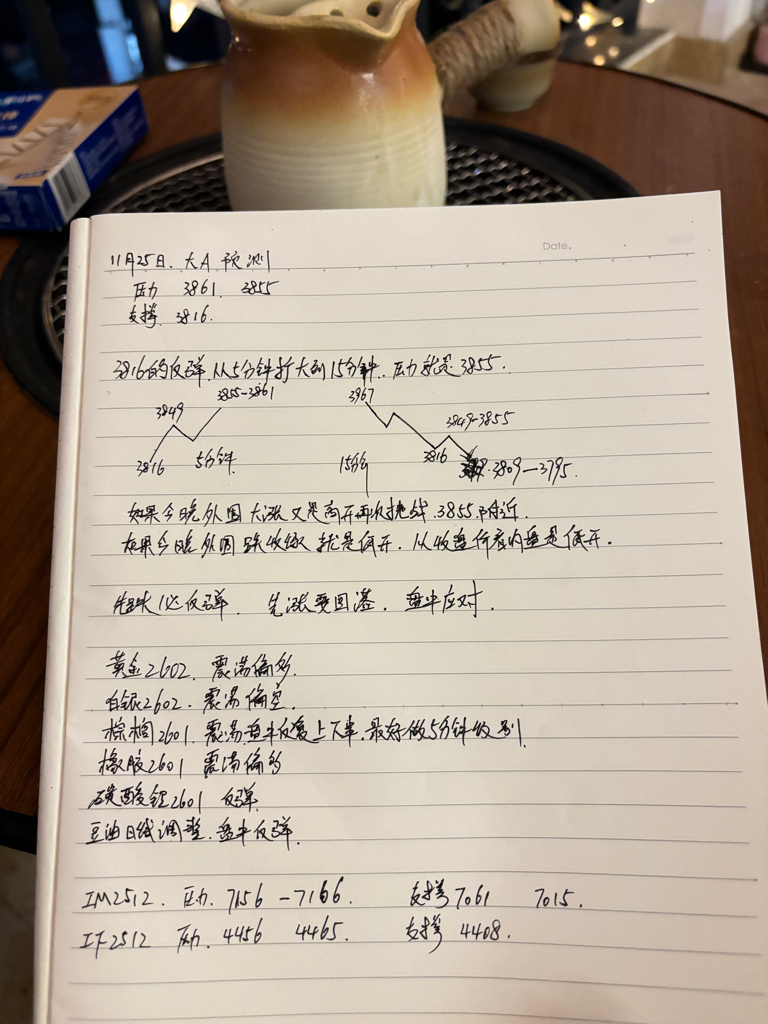 Date.
11月25日. 大A 预测
压力 3861. 3855
支撑 3816.
3816的反弹.从5分钟扩大到15分钟. 压力就是3855.
3849 3855-3861
3816 5分钟.
3967 3849-3855
15分钟 3816 3809-3795.
如果今晚外围大涨又是高开再次挑战 3855附近.
如果今晚外围 跌收绿 就是低开. 从收盘价看内盘是低开.
先跌必反弹. 先涨要回落. 盘中应对.
黄金2602. 震荡偏多.
白银2602. 震荡偏空.
棕榈2601. 震荡.盘中反复上下半.最好做5分钟级别.
橡胶2601 震荡偏多
碳酸锂2601 反弹.
豆油日线调整. 盘中反弹.
IM2512. 压力. 7156 -7166. 支撑7061 7015.
IF2512 压力. 4456 4465. 支撑 4408.